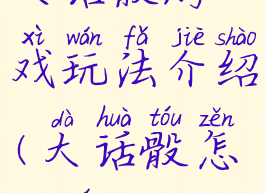 xì wán fǎ jiè shào
戏玩法介绍
dà huà tóu zěn
(大话骰怎